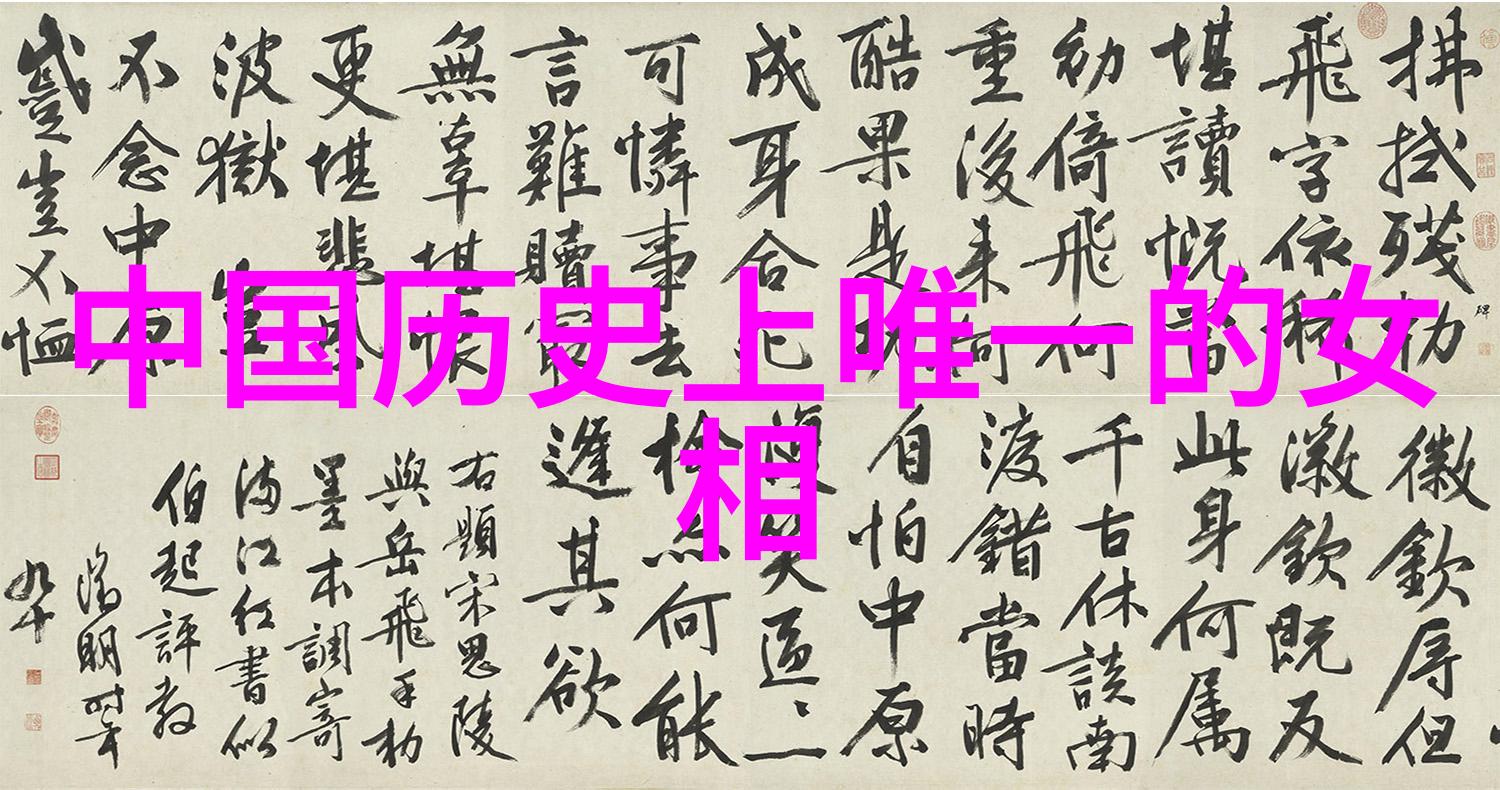 拂拭殘勑
碑
飛字依稀
堪讀慨當
初倚飛何
重後来何
酷果是功
成身合死
可憐事去
言難贖最
無辜堪恨
更堪悲風
波獄豈
不念中原
蹙豈不恤
中国历史上唯一的女
相
徽欽辱但
徽欽既反
此身何属
千古休談南
渡錯當時
自怕中原
復笑區〻一
桧亦何能
逢其欲
右題宋思陵
與岳飛手勑
墨本調寄
满江红書似
伯起評教
徵明时年
九十